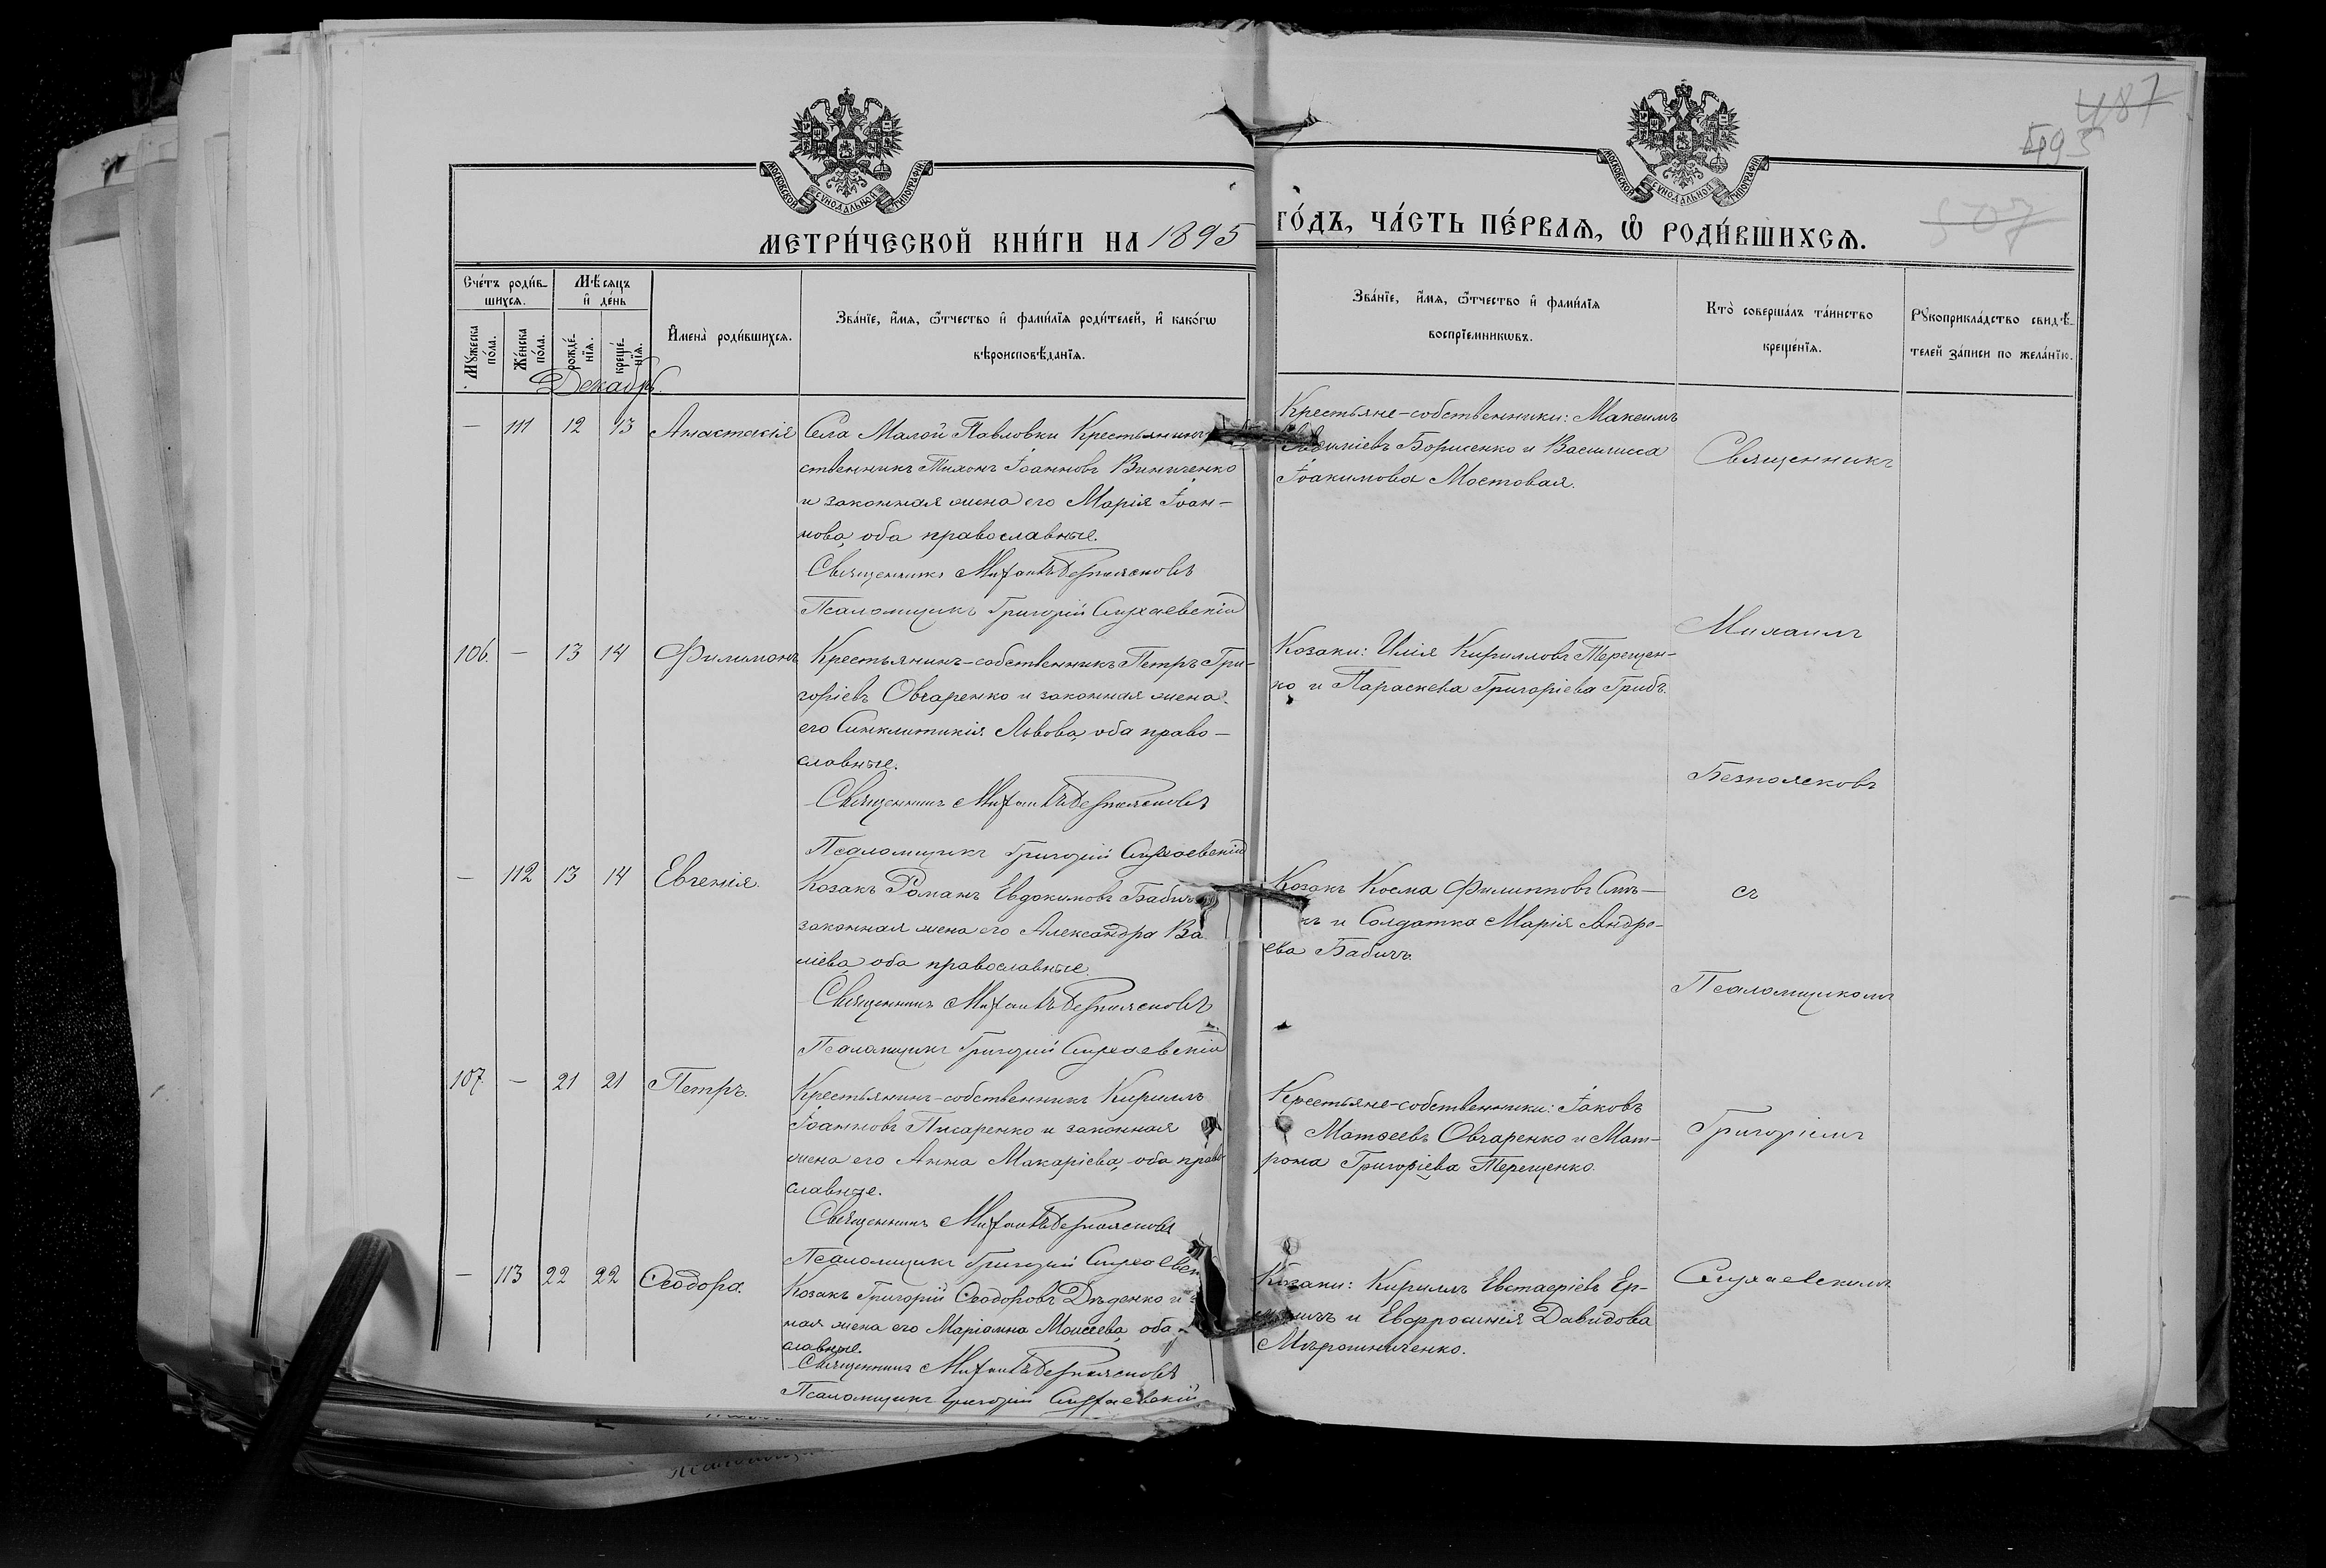 487
495
507
МОСКОВСКОЙ СУНОДАЛЬНОЙ ТИПОГРАФІИ
МОСКОВСКОЙ СУНОДАЛЬНОЙ ТИПОГРАФІИ
МЕТРИ́ЧЕСКОЙ КНИ́ГИ НА 1895 ГО́ДЪ, ЧА́СТЬ ПЕ́РВАѦ, Ѡ҆ РОДИ́ВШИХСѦ.
Сче́тъ роди́в-
шихсѧ.
Мѣ́сѧцъ
и҆ де́нь
Мꙋ́жеска по́ла.
Же́нска по́ла.
рожде́-
нїѧ.
креще́-
нїѧ.
И҆мена̀ роди́вшихсѧ.
Зва́нїе, и҆́мѧ, ѻ҆́тчество и҆ фами́лїѧ роди́телей, и҆ како́гѡ
вѣроисповѣ́данїѧ.
Зва́нїе, и҆́мѧ, ѻ҆́тчество и҆ фами́лїѧ
воспрїе́мникѡвъ.
Кто̀ соверша́лъ та́инство
креще́нїѧ.
Рꙋкоприкла́дство свидѣ́-
телей за́писи по жела́нїю.
Декабрь.
— 111 12 13 Анастасія
Села Малой Павловки Крестьянинъ
ственникъ Тихонъ Іоанновъ Винниченко
и законная жена его Марія Іоан-
нова, оба православные.
Священникъ Михаилъ Безпоясковъ
Псаломщикъ Григорій Слухаевскій
Крестьяне-собственники: Максимъ
Евѳиміевъ Борисенко и Василисса
Іоакимова Мостовая.
Священникъ
Михаилъ
106. — 13 14 Филимонъ
Крестьянинъ-собственникъ Петръ Гри-
горіевъ Овчаренко и законная жена
его Синклитикія Львова, оба право-
славные.
Священникъ Михаилъ Безпоясковъ
Псаломщикъ Григорій Слухаевскій
Козаки: Илія Кирилловъ Терещен-
ко и Параскева Григоріева Грибъ.
Безпоясковъ
— 112 13 14 Евгенія.
Козакъ Романъ Евдокимовъ Бабичъ
законная жена его Александра Ва
ліева, оба православные.
Священникъ Михаилъ Безпоясковъ
Псаломщикъ Григорій Слухаевскій
Козакъ Косма Филипповъ
и Солдатка Марія Андре-
ева Бабичъ.
съ
Псаломщикомъ
107. — 21 21 Петръ.
Крестьянинъ-собственникъ Кириллъ
Іоанновъ Писаренко и законная
жена его Анна Макаріева, оба право
славные.
Священникъ Михаилъ Безпоясковъ
Псаломщикъ Григорій Слухаевскій
Крестьяне-собственники: Іаковъ
Матѳеевъ Овчаренко и Мат-
рона Григоріева Терещенко.
Григоріемъ
— 113 22 22 Ѳеодора.
Козакъ Григорій Ѳеодоровъ Дѣденко и
ная жена его Маріамна Моисеева, оба
славные.
Священникъ Михаилъ Безпоясковъ
Псаломщикъ Григорій Слухаевскій
Козаки: Кириллъ Евстаѳіевъ Ер-
и Евфросинія Давидова
Мѣрошниченко.
Слухаевскимъ